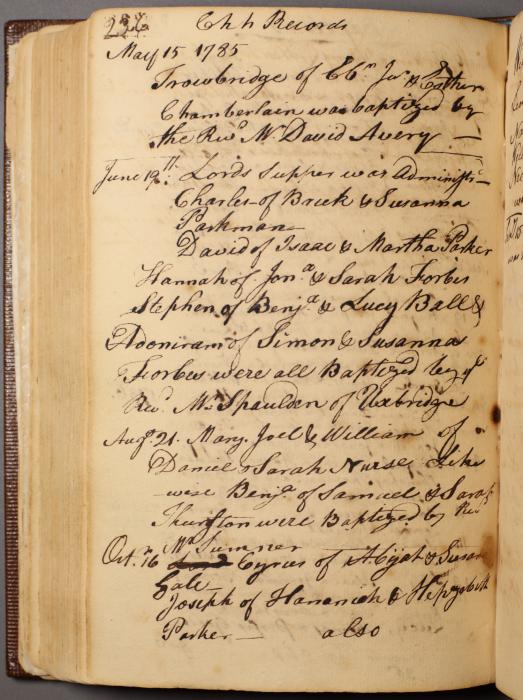 226 Chh Records
May 15 1785
Trowbridge of Ebn. Jur. & Esther
Chamberlain was baptized by
the Revd. Mr. David Avery —
June 19th: Lords Supper was Administr —
Charles of Breck & Susanna
Parkman
David of Isaac & Martha Parker
Hannah of Jona. & Sarah Forbes
Stephen of Benja. & Lucy Ball &
Adoniram of Simon & Susanna
Forbes were all Baptized by ye
Revd. Mr Spaulden of Uxbridge
Augt. 21. Mary, Joel & William of
Daniel & Sarah Nurse, Like
-wise Benja. of Samuel & Sarah
Thurston were Baptized by Revd
Mr Sumner
Oct. 16 Cyrus of Abijah & Susan
Gale
Joseph of Hananiah & Hepzabeth
Parker — also